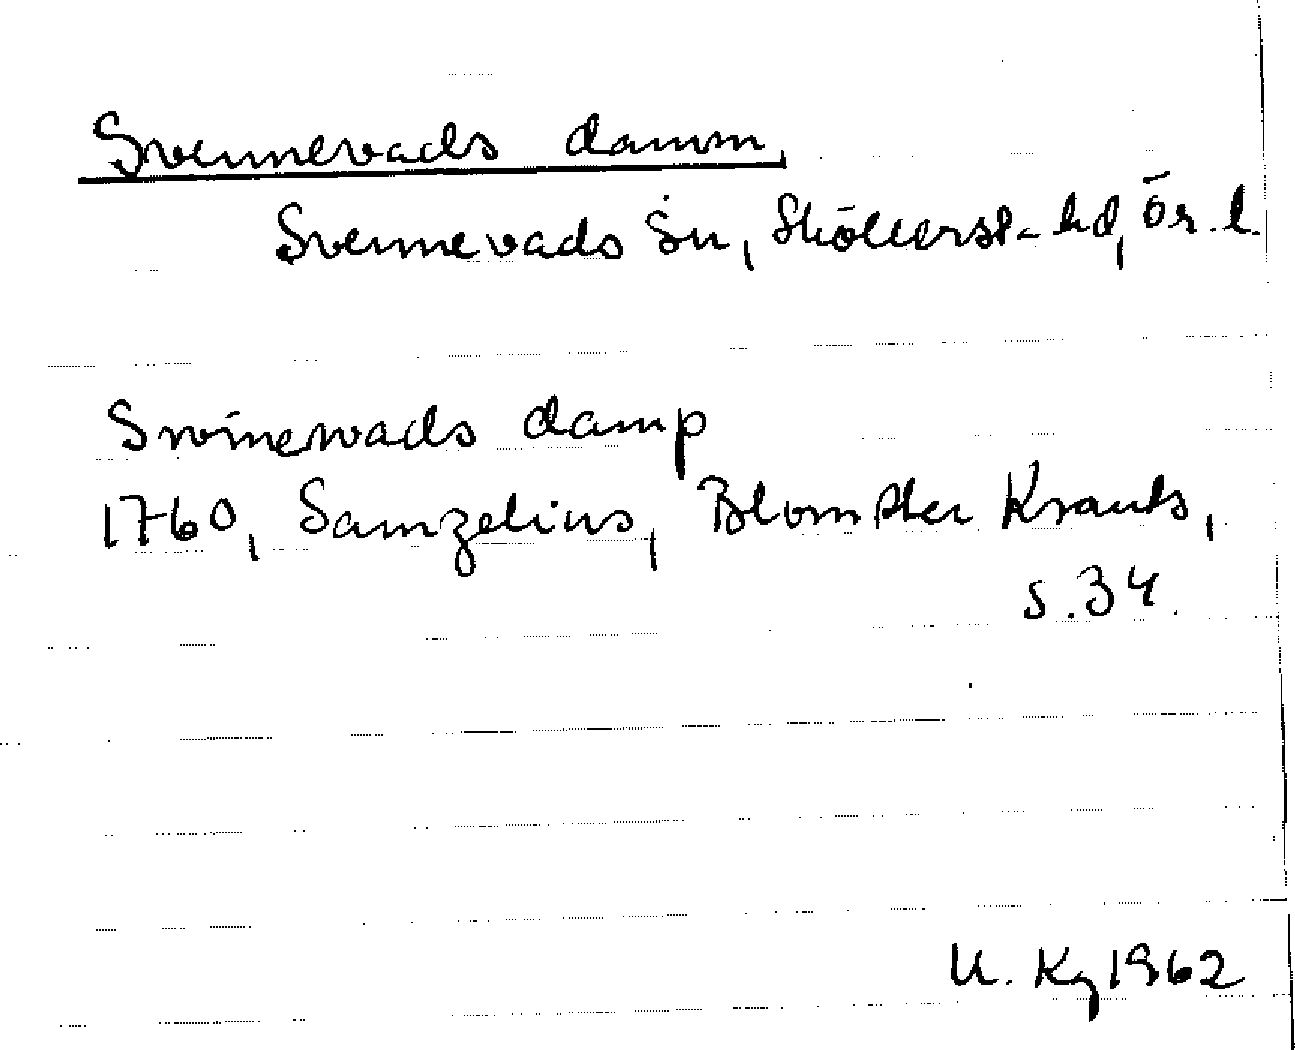 Svennevads damm,
Svennevads sn, Sköllerst. hd, Ör. l.
Swinewads damp
1760, Samzelius, Blomster Krants,
s. 34.
U. Kg 1962